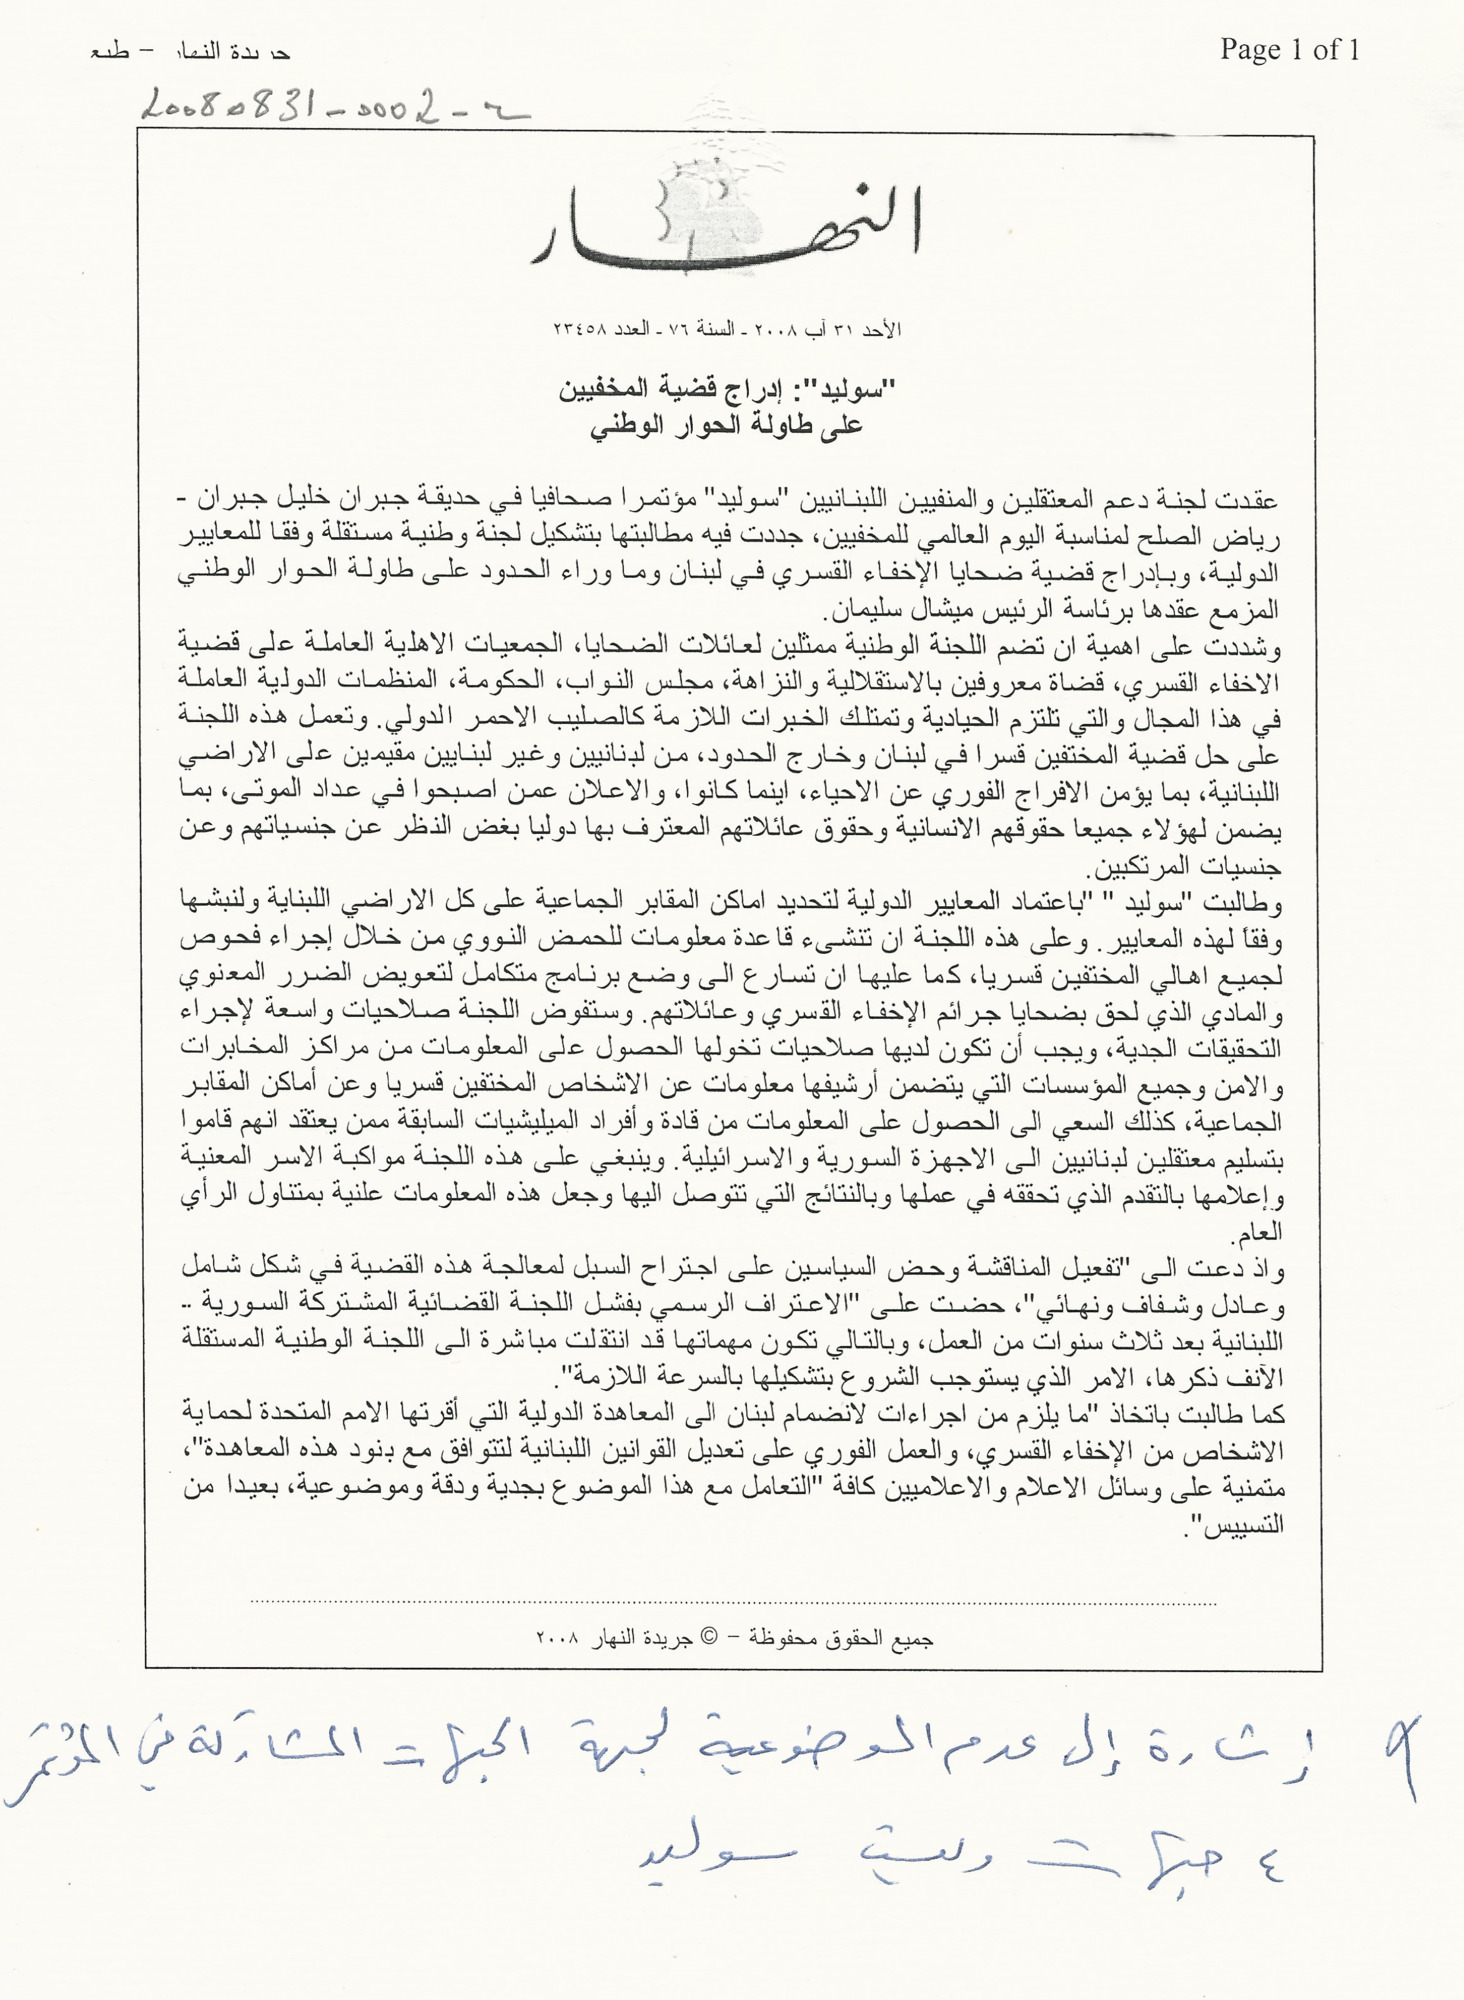 جريدة النهار - طبع
Page 1 of 1
20080831-0002-
النهار
الأحد ٣١ آب ٢٠٠٨ - السنة ٧٦ - العدد ٢٣٤٥٨
"سوليد": إدراج قضية المخفيين
على طاولة الحوار الوطني
عقدت لجنة دعم المعتقلين والمنفيين اللبنانيين "سوليد" مؤتمرا صحافيا في حديقة جبران خليل جبران -
رياض الصلح لمناسبة اليوم العالمي للمخفيين، جددت فيه مطالبتها بتشكيل لجنة وطنية مستقلة وفقا للمعايير
الدولية، وبإدراج قضية ضحايا الإخفاء القسري في لبنان وما وراء الحدود على طاولة الحوار الوطني
المزمع عقدها برئاسة الرئيس ميشال سليمان.
وشددت على اهمية ان تضم اللجنة الوطنية ممثلين لعائلات الضحايا، الجمعيات الاهلية العاملة على قضية
الاخفاء القسري، قضاة معروفين بالاستقلالية والنزاهة، مجلس النواب، الحكومة، المنظمات الدولية العاملة
في هذا المجال والتي تلتزم الحيادية وتمتلك الخبرات اللازمة كالصليب الاحمر الدولي. وتعمل هذه اللجنة
على حل قضية المختفين قسرا في لبنان وخارج الحدود، من لبنانيين وغير لبنايين مقيمين على الاراضي
اللبنانية، بما يؤمن الافراج الفوري عن الاحياء، اينما كانوا، والاعلان عمن اصبحوا في عداد الموتى، بما
يضمن لهؤلاء جميعا حقوقهم الانسانية وحقوق عائلاتهم المعترف بها دوليا بغض النظر عن جنسياتهم وعن
جنسيات المرتكبين.
وطالبت "سوليد " "باعتماد المعايير الدولية لتحديد اماكن المقابر الجماعية على كل الاراضي اللبناية ولنبشها
وفقاً لهذه المعايير. وعلى هذه اللجنة ان تنشىء قاعدة معلومات للحمض النووي من خلال إجراء فحوص
لجميع اهالي المختفين قسريا، كما عليها ان تسارع الى وضع برنامج متكامل لتعويض الضرر المعنوي
والمادي الذي لحق بضحايا جرائم الإخفاء القسري وعائلاتهم. وستفوض اللجنة صلاحيات واسعة لإجراء
التحقيقات الجدية، ويجب أن تكون لديها صلاحيات تخولها الحصول على المعلومات من مراكز المخابرات
والامن وجميع المؤسسات التي يتضمن أرشيفها معلومات عن الاشخاص المختفين قسريا وعن أماكن المقابر
الجماعية، كذلك السعي الى الحصول على المعلومات من قادة وأفراد الميليشيات السابقة ممن يعتقد انهم قاموا
بتسليم معتقلين لبنانيين الى الاجهزة السورية والاسرائيلية. وينبغي على هذه اللجنة مواكبة الاسر المعنية
وإعلامها بالتقدم الذي تحققه في عملها وبالنتائج التي تتوصل اليها وجعل هذه المعلومات علنية بمتناول الرأي
العام.
واذ دعت الى "تفعيل المناقشة وحض السياسين على اجتراح السبل لمعالجة هذه القضية في شكل شامل
وعادل وشفاف ونهائي"، حضت على "الاعتراف الرسمي بفشل اللجنة القضائية المشتركة السورية --
اللبنانية بعد ثلاث سنوات من العمل، وبالتالي تكون مهماتها قد انتقلت مباشرة الى اللجنة الوطنية المستقلة
الآنف ذكرها، الامر الذي يستوجب الشروع بتشكيلها بالسرعة اللازمة".
كما طالبت باتخاذ "ما يلزم من اجراءات لانضمام لبنان الى المعاهدة الدولية التي أقرتها الامم المتحدة لحماية
الاشخاص من الإخفاء القسري، والعمل الفوري على تعديل القوانين اللبنانية لتتوافق مع بنود هذه المعاهدة"،
متمنية على وسائل الاعلام والاعلاميين كافة "التعامل مع هذا الموضوع بجدية ودقة وموضوعية، بعيدا من
التسييس".
جميع الحقوق محفوظة - © جريدة النهار ٢٠٠٨
إشارة إلى عدم الموضوعية لجهة الجهات المشاركة في المؤتمر
٤ جهات وليست سوليد